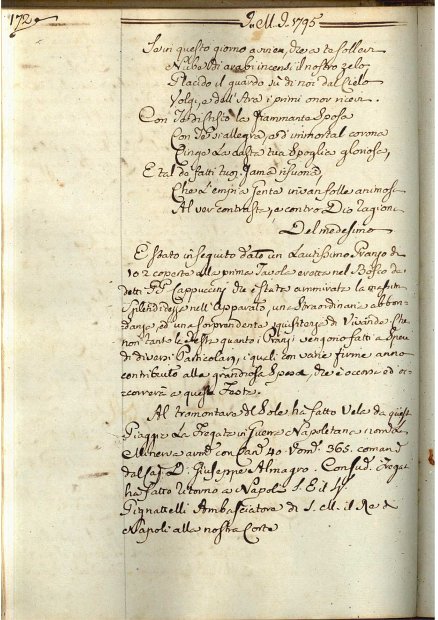 172
M.d. 1795
In questo giorno
Nubi d'arabi incensi il nostro zelo
Placido il guardo sù di noi dal Cielo
Volgi, e dall'Ara i primi onor ricevi.
Con Te la fiammante Sposa
Con Te s'allegra, ed immortal corona
Cinga la casta tua Spoglia gloriosa,
E tal de fatti tuoi fama risuona,
Che l'empia Gente
Al ver contrasta, e contro Dio
Del medesimo
È stato in seguito dato un Lautissimo Pranzo di
102 coperte alla prima Tavola eretta nel Bosco de
detti PP. Cappuccini, che è stata ammirata la
nell'Apparato, una straordinaria abbon-
danza, ed una sorprendente squisitezza di Vivande. Che
non tanto le Feste quanto i Pranzi vengono fatti a Spese
di diversi Particolari, i quali con varie firme anno
contribuito alla grandiosa Spesa, che è occorsa ed oc-
correrà a queste Feste.
Al tramontare del Sole ha fatto Vela da queste
Piagge la Fregata in Guerra Napoletana
Minerva 40 365. comand.
dal D: Giuseppe Almagro.
ha fatto ritorno a Napoli S. E. il
Pignattelli Ambasciatore di S. M. il Re di
Napoli alla nostra Corte